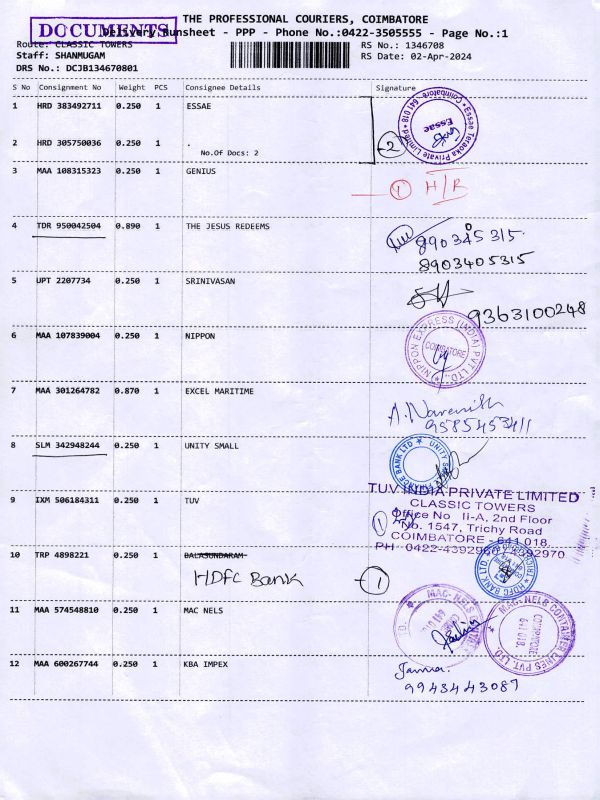 THE PROFESSIONAL COURIERS, COIMBATORE
DOCUMENTS
Delivery Runsheet - PPP - Phone No.:0422-3505555 - Page No.:1
Route: CLASSIC TOWERS
RS No.: 1346708
Staff: SHANMUGAM
RS Date: 02-Apr-2024
DRS No.: DCJB134670801
S No Consignment No Weight PCS Consignee Details Signature
1 HRD 383492711 0.250 1 ESSAE
Essae Teraoka Private Limited
Coimbatore 641 018
Essae
2 HRD 305750036 0.250 1 .
No.Of Docs: 2
-2
3 MAA 108315323 0.250 1 GENIUS
1 H/R
4 TDR 950042504 0.890 1 THE JESUS REDEEMS
8903405315
8903405315
5 UPT 2207734 0.250 1 SRINIVASAN
9363100248
6 MAA 107839004 0.250 1 NIPPON
NIPPON EXPRESS (INDIA) PVT. LTD.
COIMBATORE
7 MAA 301264782 0.870 1 EXCEL MARITIME
9585453411
8 SLM 342948244 0.250 1 UNITY SMALL
UNITY SMALL FINANCE BANK LTD
9 IXM 506184311 0.250 1 TUV
TUV INDIA PRIVATE LIMITED
CLASSIC TOWERS
Office No II-A, 2nd Floor
No. 1547, Trichy Road
COIMBATORE - 641 018.
PH 0422-4392968 / 4392970
1
10 TRP 4898221 0.250 1 BALASUNDARAM
HDFC Bank
-1
HDFC BANK LTD.
11 MAA 574548810 0.250 1 MAC NELS
MAC-NELS
MAC-NELS CONTAINER LINES PVT. LTD.
COIMBATORE
641 018.
12 MAA 600267744 0.250 1 KBA IMPEX
9943443087